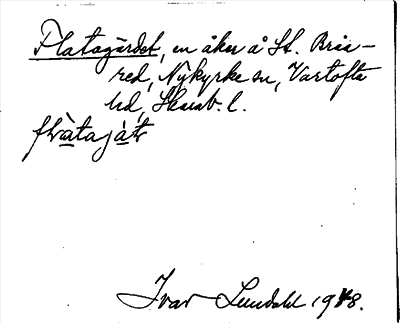 Flatagärdet, en åker å St. Bria-
red, Nykyrke sn, Vartofta
hd, Skarab. l.
flàtajàt
Ivar Lundahl 1948.